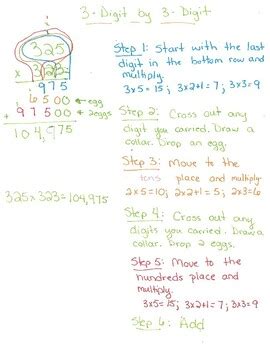 3-Digit by 3-Digit
325
x 323
975
6500 ← egg
+ 97500 ← 2 eggs
104,975
325 × 323 = 104,975
Step 1: Start with the last
digit in the bottom row and
multiply.
3x5=15; 3x2+1=7; 3x3=9
Step 2: Cross out any
digit you carried. Draw a
collar. Drop an egg.
Step 3: Move to the
tens place and multiply
2x5=10; 2x2+1=5; 2x3=6
Step 4: Cross out any
digits you carried. Draw a
collar. Drop 2 eggs.
Step 5: Move to the
hundreds place and
multiply.
3x5=15; 3x2+1=7; 3x3=9
Step 6: Add